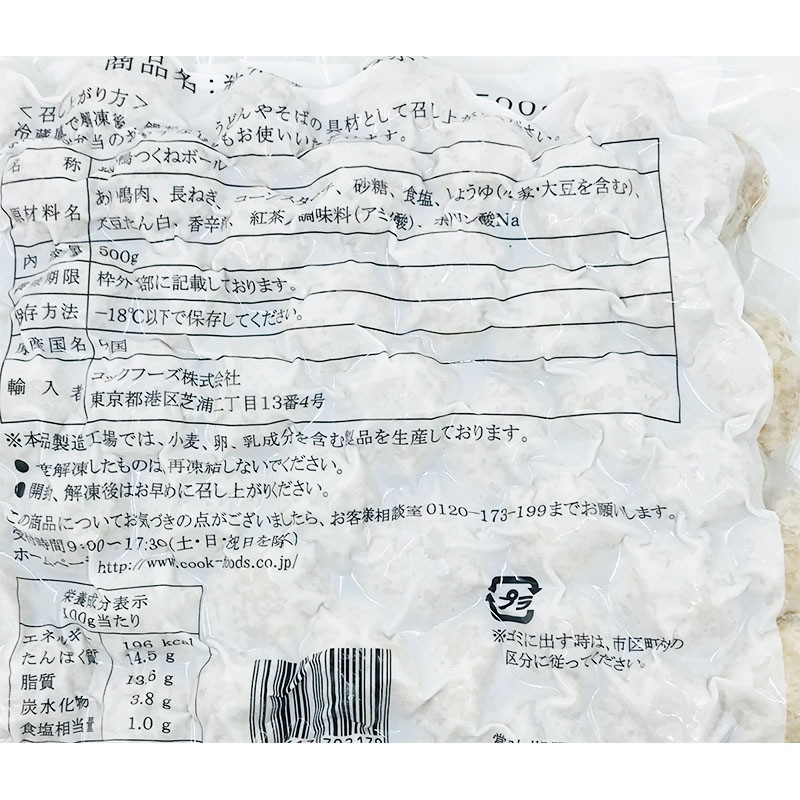 商品名:
<召し上がり方>
冷蔵庫で解凍後 うどんやそばの具材として召し上がりください。
もお使いいただけます。
名称 鴨つくねボール
原材料名 あい鴨肉、長ねぎ、コーンスターチ、砂糖、食塩、しょうゆ(小麦・大豆を含む)、
大豆たん白、香辛料、紅茶、調味料(アミノ酸)、ポリリン酸Na
内容量 500g
期限 枠外下部に記載しております。
保存方法 −18℃以下で保存してください。
原産国名 中国
輸入者 コックフーズ株式会社
東京都港区芝浦二丁目13番4号
※本品製造工場では、小麦、卵、乳成分を含む製品を生産しております。
●一度解凍したものは、再凍結しないでください。
●開封、解凍後はお早めに召し上がりください。
この商品についてお気づきの点がございましたら、お客様相談室0120-173-199までお願いします。
受付時間9:00〜17:30(土・日・祝日を除く)
ホームページ http://www.cook-foods.co.jp/
栄養成分表示
100g当たり
エネルギー 196 kcal
たんぱく質 14.5 g
脂質 13.6 g
炭水化物 3.8 g
食塩相当量 1.0 g
プラ
※ゴミに出す時は、市区町村の
区分に従ってください。